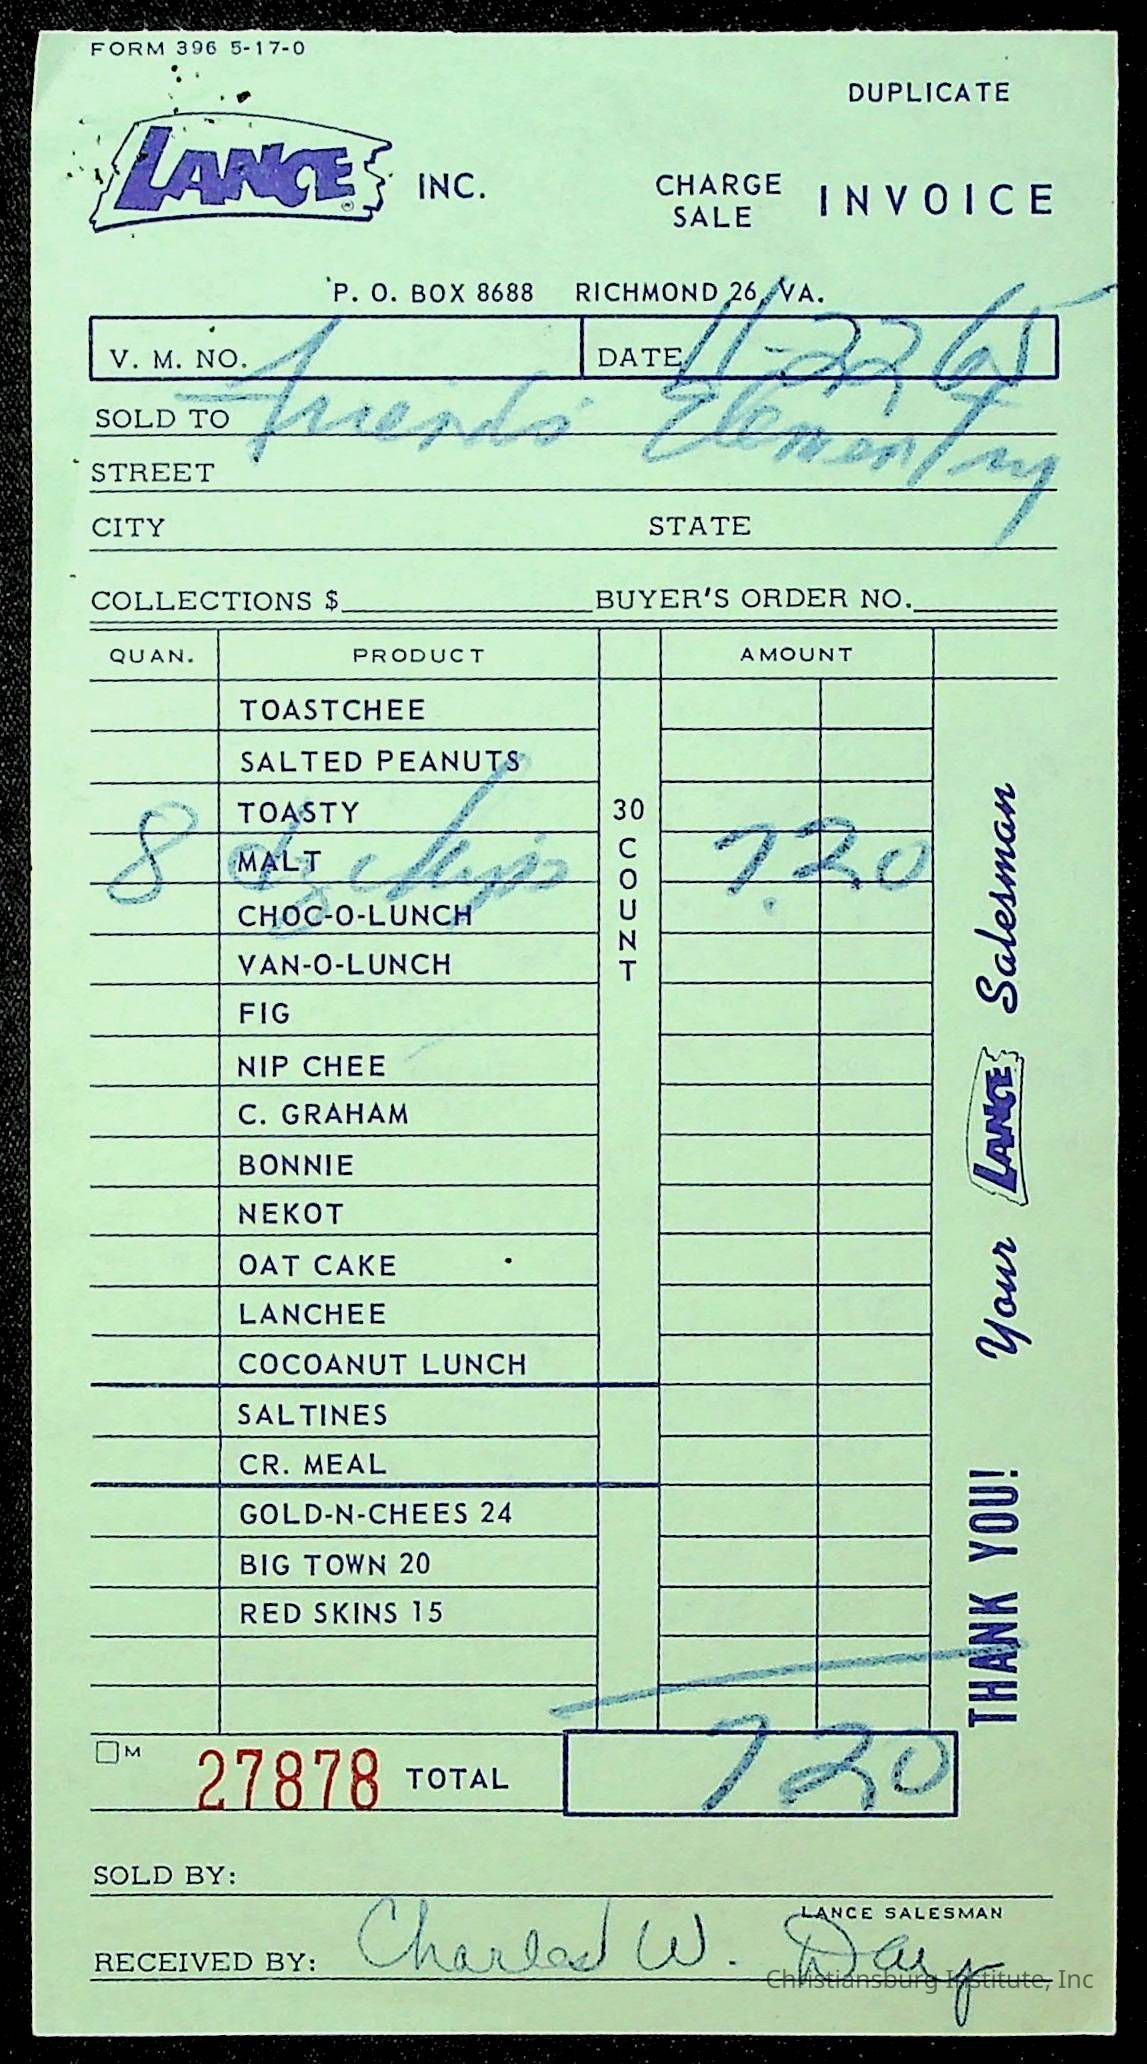 FORM 396 5-17-0
DUPLICATE
LANCE ® INC.
CHARGE SALE INVOICE
P. O. BOX 8688 RICHMOND 26, VA.
V. M. NO. DATE 11-22 65
SOLD TO Friends Elementry
STREET
CITY STATE
COLLECTIONS $ BUYER'S ORDER NO.
QUAN. PRODUCT AMOUNT
TOASTCHEE
SALTED PEANUTS
TOASTY
8 dz chips 7.20
MALT
CHOC-O-LUNCH
VAN-O-LUNCH
FIG
NIP CHEE
C. GRAHAM
BONNIE
NEKOT
OAT CAKE
LANCHEE
COCOANUT LUNCH
30 COUNT
SALTINES
CR. MEAL
GOLD-N-CHEES 24
BIG TOWN 20
RED SKINS 15
THANK YOU! Your LANCE Salesman
M 27878 TOTAL 7 20
SOLD BY:
LANCE SALESMAN
RECEIVED BY: Charles W. Day
Christiansburg Institute, Inc